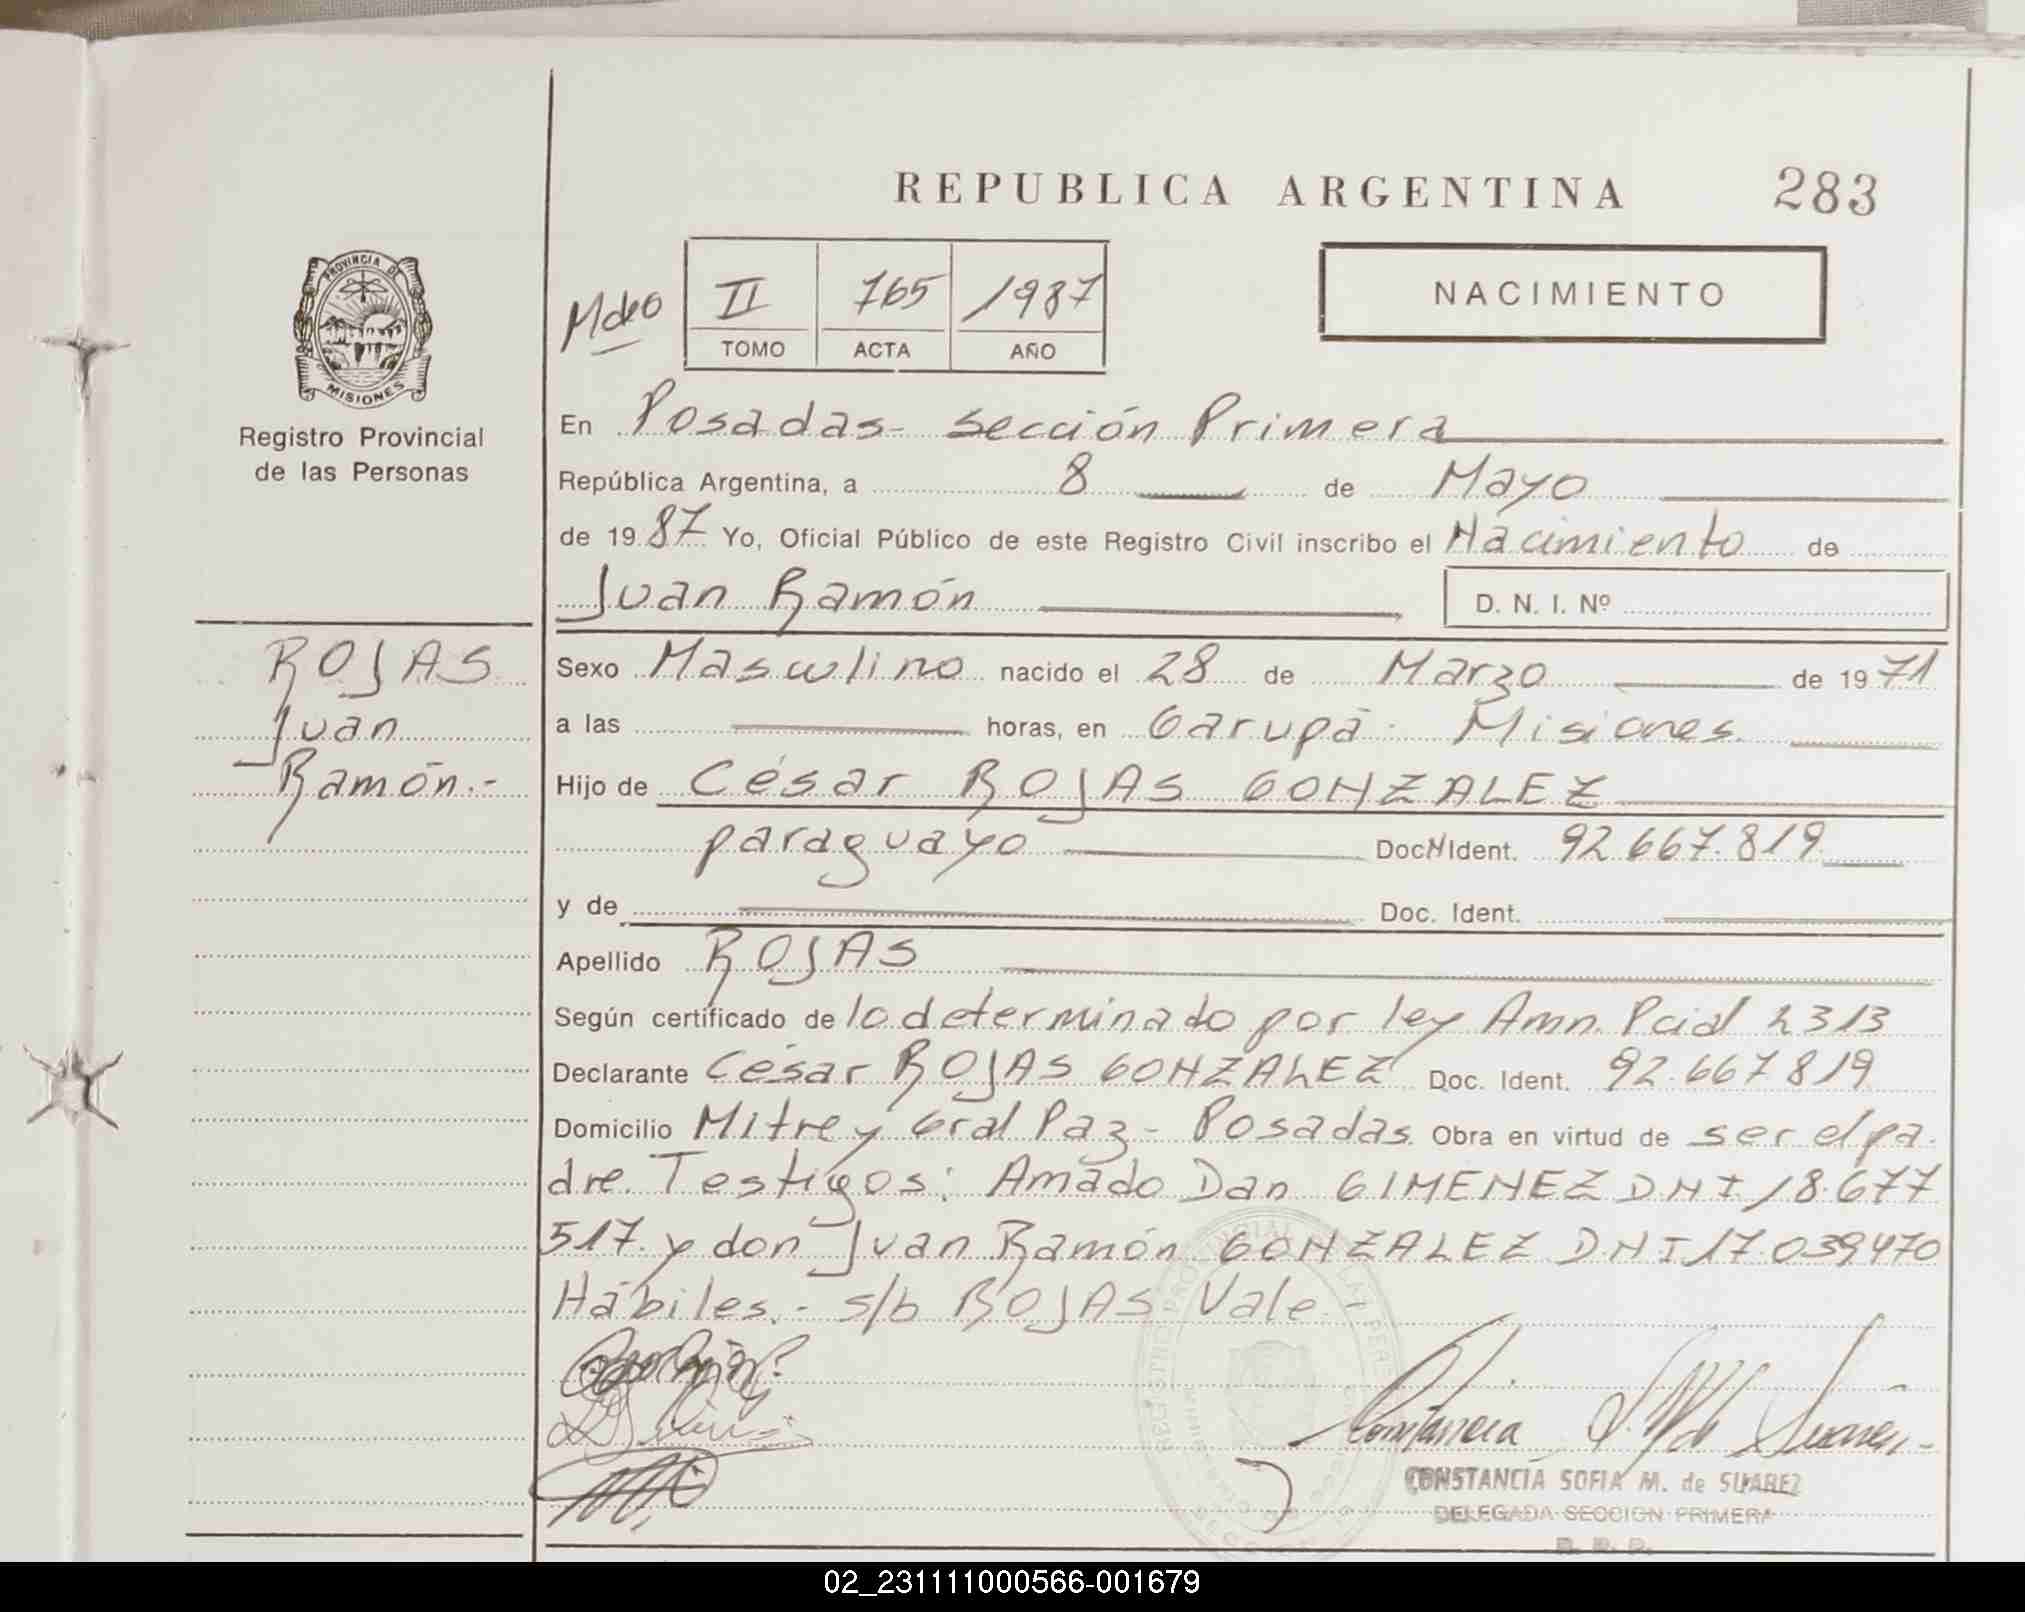 REPUBLICA ARGENTINA 283
PROVINCIA DE
MISIONES
Registro Provincial
de las Personas
II 765 1987
TOMO ACTA AÑO
NACIMIENTO
En Posadas - Sección Primera
República Argentina, a 8 de Mayo
de 1987 Yo, Oficial Público de este Registro Civil inscribo el Nacimiento de
Juan Ramón D. N. I. Nº
ROJAS
Juan
Ramón.-
Sexo Masculino nacido el 28 de Marzo de 1971
a las horas, en Garupá - Misiones
Hijo de César ROJAS GONZALEZ
paraguayo Doc N Ident. 92.667.819
y de Doc. Ident.
Apellido ROJAS
Según certificado de lo determinado por ley Amn. Pcial 2313
Declarante César ROJAS GONZALEZ Doc. Ident. 92.667.819
Domicilio Mitre y Gral Paz - Posadas. Obra en virtud de ser el pa-
dre. Testigos: Amado Dan GIMENEZ DNI 18.677
517. y don Juan Ramón GONZALEZ DNI 17.039470
Hábiles.- s/b ROJAS Vale.-
CONSTANCIA SOFIA M. de SUAREZ
DELEGADA SECCION PRIMERA
R. P. P.
02_231111000566-001679